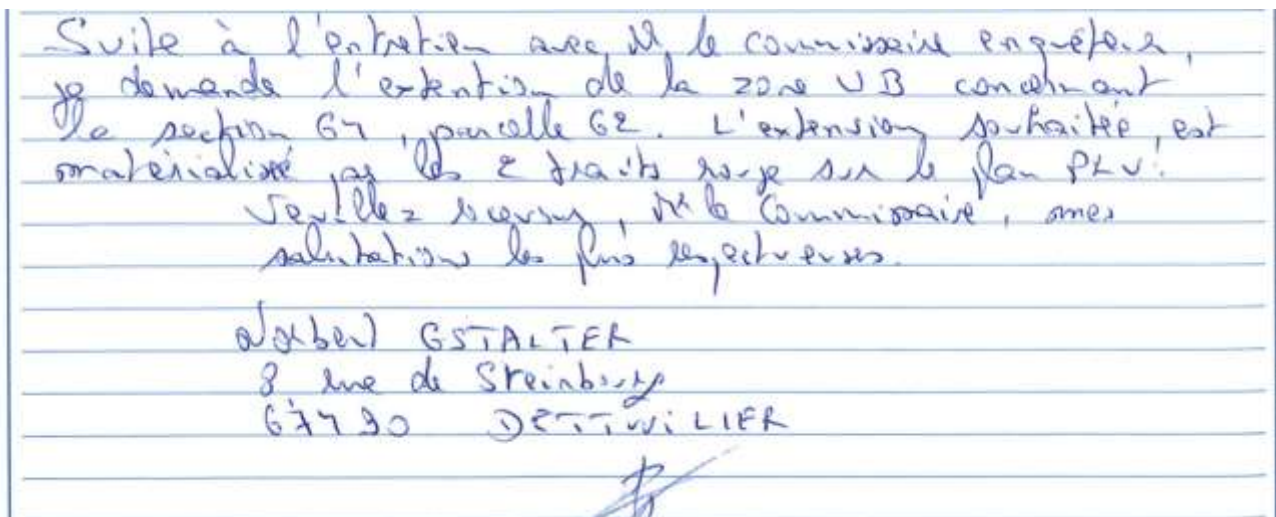 Suite à l'entretien avec M le commissaire enquêteur,
je demande l'extention de la zone UB concernant
la section 64, parcelle 62. L'extension souhaitée, est
matérialisé par les 2 traits rouge sur le plan PLU.
Veuillez recevoir, Mr le Commissaire, mes
salutations les plus respectueuses.
Norbert GSTALTER
8 rue de Steinbourg
67490 DETTWILIER